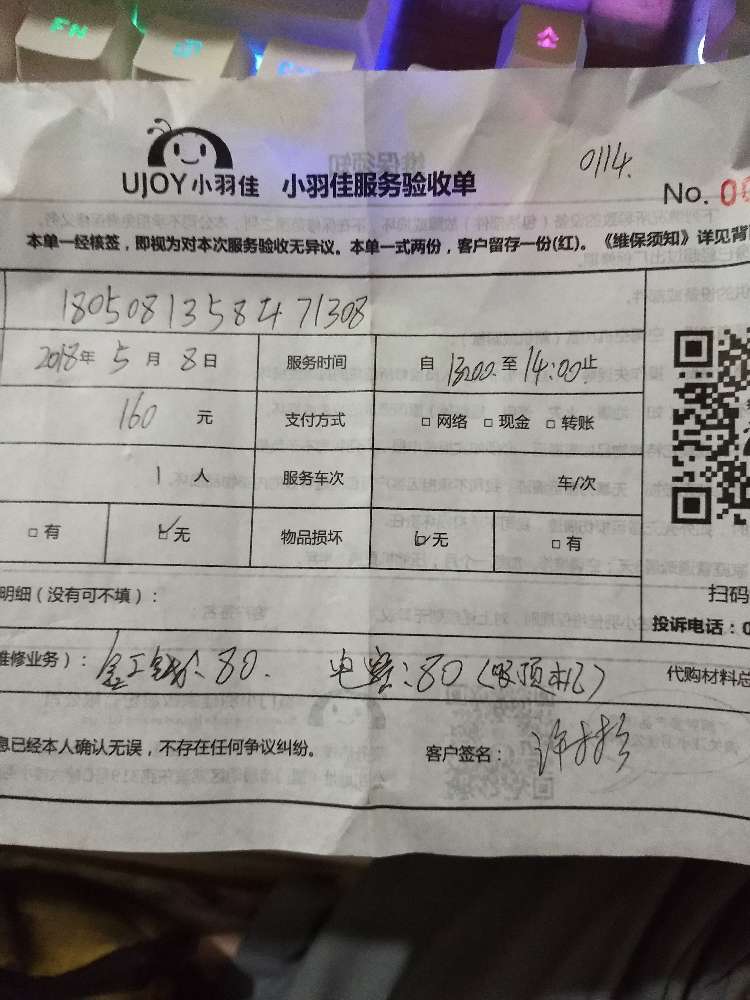 FN
UJOY小羽佳 小羽佳服务验收单
0114.
No. 0
本单一经核签，即视为对本次服务验收无异议。本单一式两份，客户留存一份(红)。《维保须知》详见背
1805081358471308
2018年 5 月 8 日 服务时间 自 13:00 至 14:00 止
160 元 支付方式 □ 网络 □ 现金 □ 转账
1 人 服务车次 车/次
□ 有 ☑无 物品损坏 ☑无 □ 有
明细（没有可不填）：
扫码
投诉电话：0
维修业务）： 80. 电容：80（吸顶机） 代购材料总
息已经本人确认无误，不存在任何争议纠纷。 客户签名：